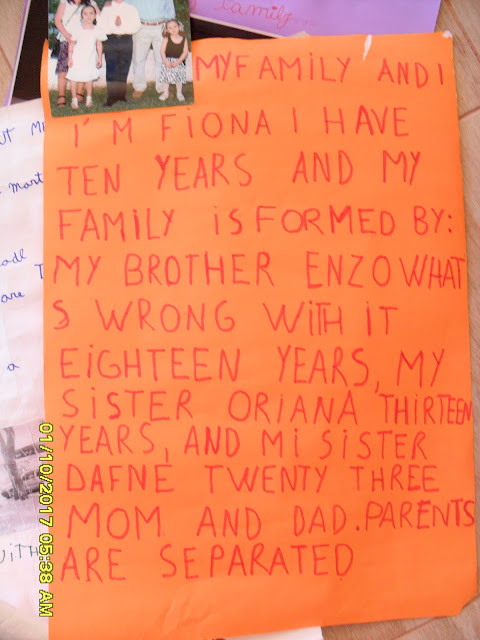 family...
MY FAMILY AND I
I'M FIONA I HAVE
TEN YEARS AND MY
FAMILY iS FORMED BY:
MY BROTHER ENZO WHAT
S WRONG WiTH iT
EiGHTEEN YEARS, MY
SiSTER ORiANA THIRTEEN
YEARS, AND Mi SiSTER
DAFNE TWENTY THREE
MOM AND DAD. PARENTS
ARE SEPARATED
are
a
01/10/2017 05:38 AM